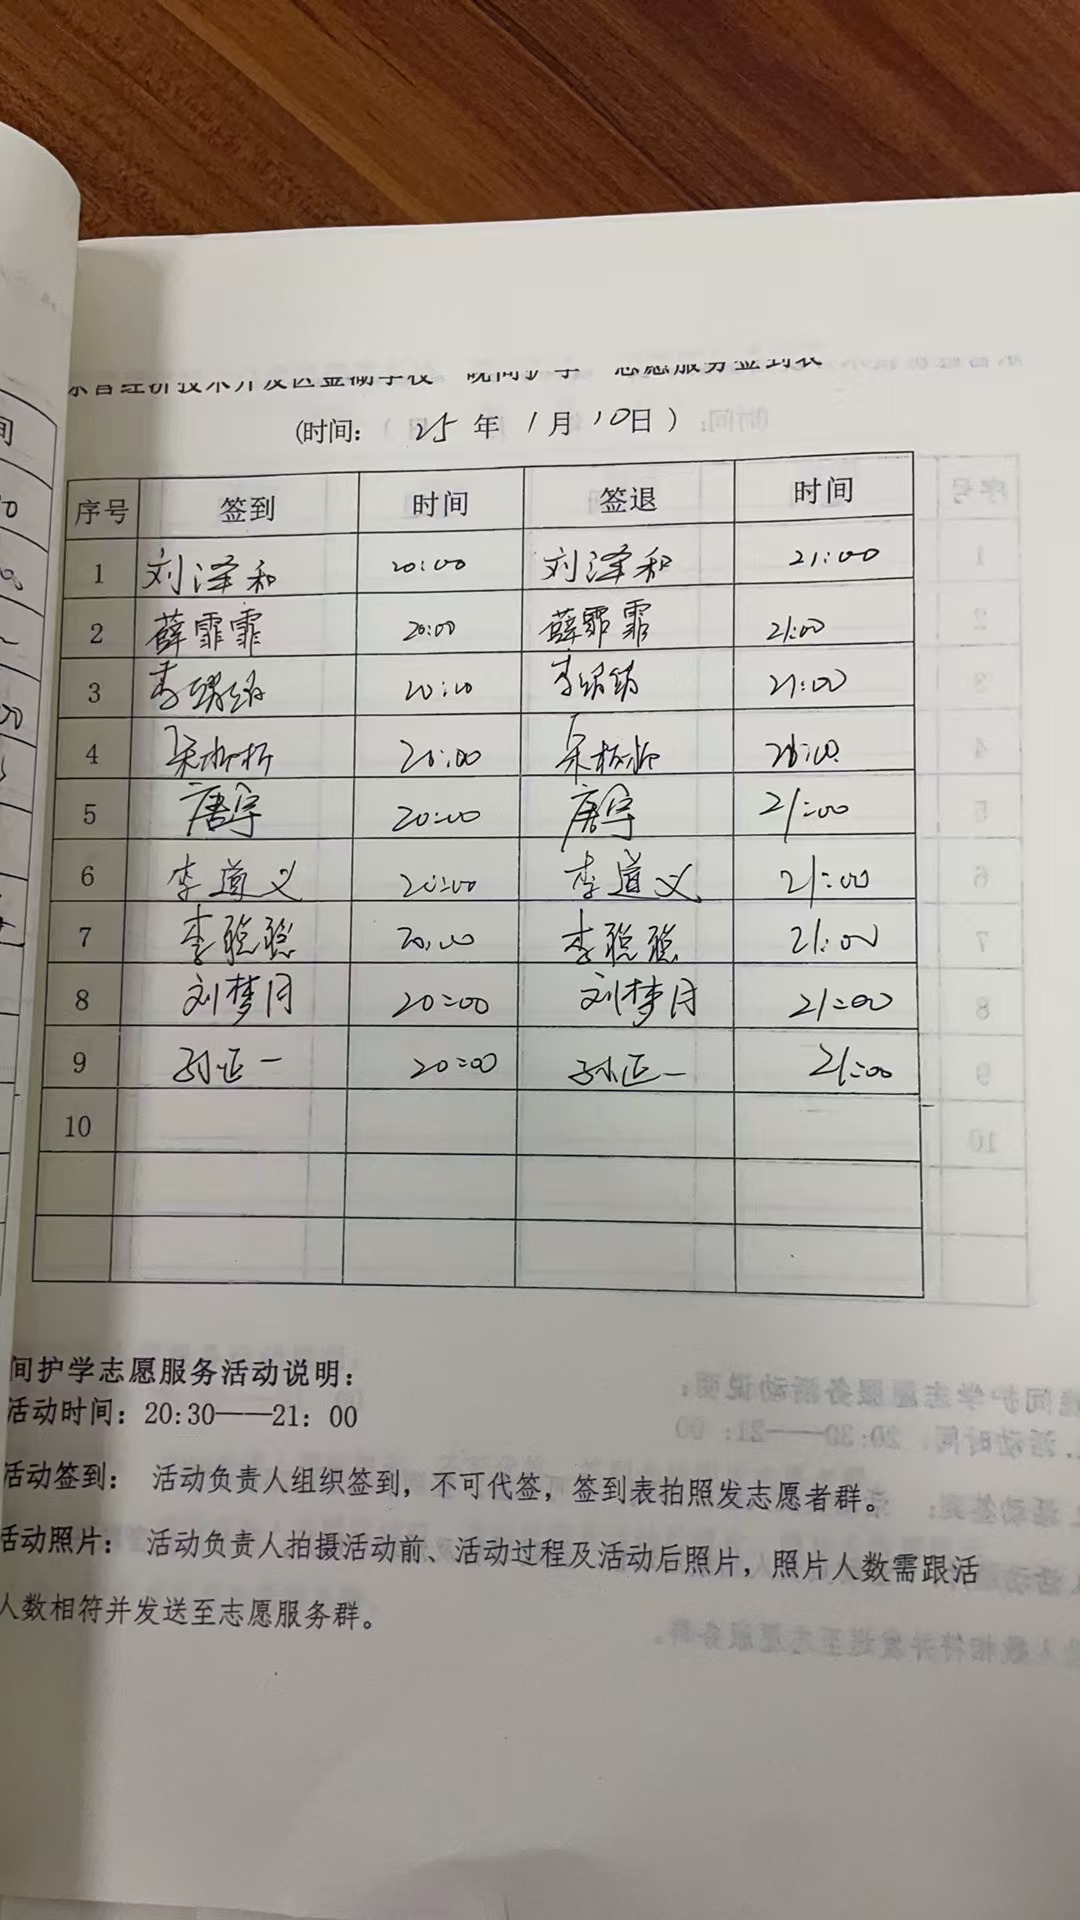 (时间: 25 年 1 月 10 日)
序号 签到 时间 签退 时间
1 刘泽和 20:00 刘泽和 21:00
2 薛霏霏 20:00 薛霏霏 21:00
3 李娟娟 20:00 李娟娟 21:00
4 20:00 21:00
5 唐宇 20:00 唐宇 21:00
6 李道义 20:00 李道义 21:00
7 李聪聪 20:00 李聪聪 21:00
8 刘梦月 20:00 刘梦月 21:00
9 孙正一 20:00 孙正一 21:00
10
间护学志愿服务活动说明:
活动时间: 20:30——21: 00
活动签到: 活动负责人组织签到, 不可代签, 签到表拍照发志愿者群。
活动照片: 活动负责人拍摄活动前、活动过程及活动后照片, 照片人数需跟活
人数相符并发送至志愿服务群。